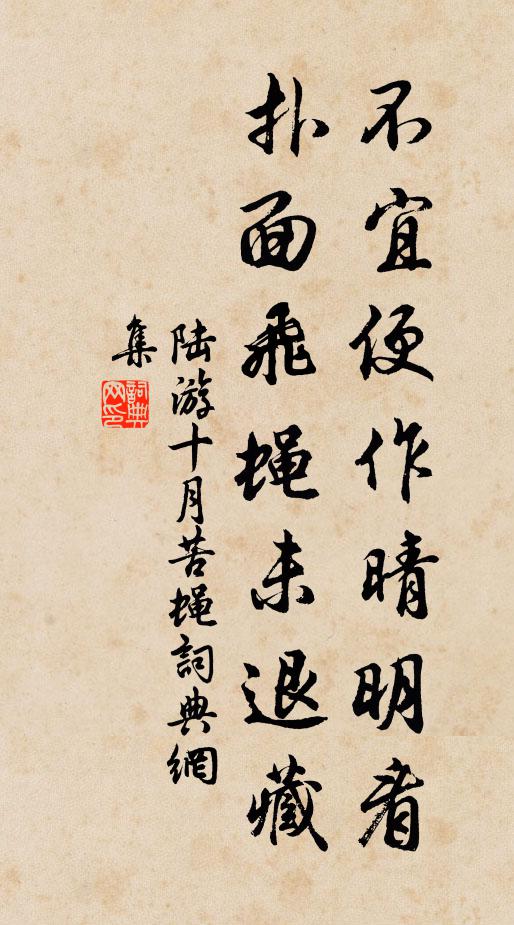 不宜便作晴明看
扑面飛蝇未退藏
陆游十月苦蝇詞典網
集
詞典网印